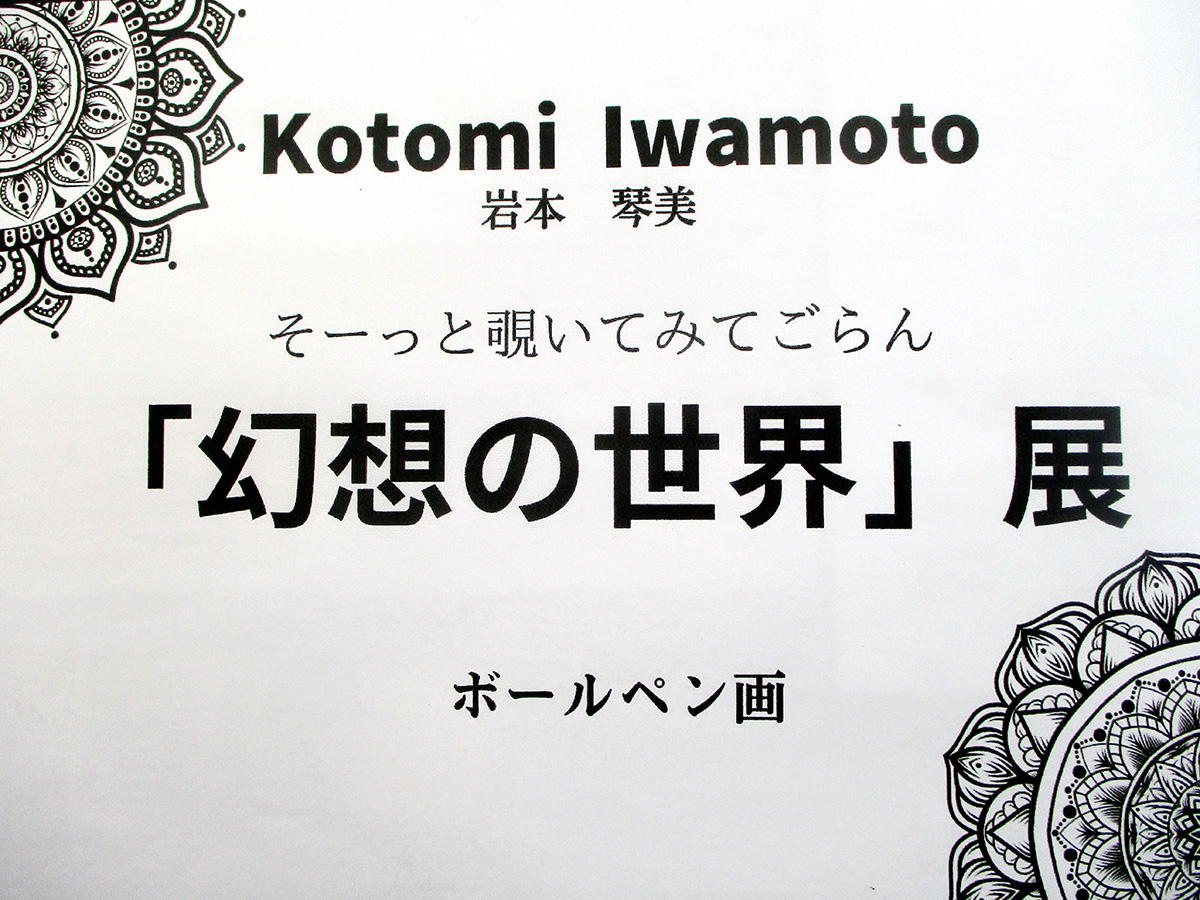 Kotomi Iwamoto
岩本 琴美
そーっと覗いてみてごらん
「幻想の世界」展
ボールペン画